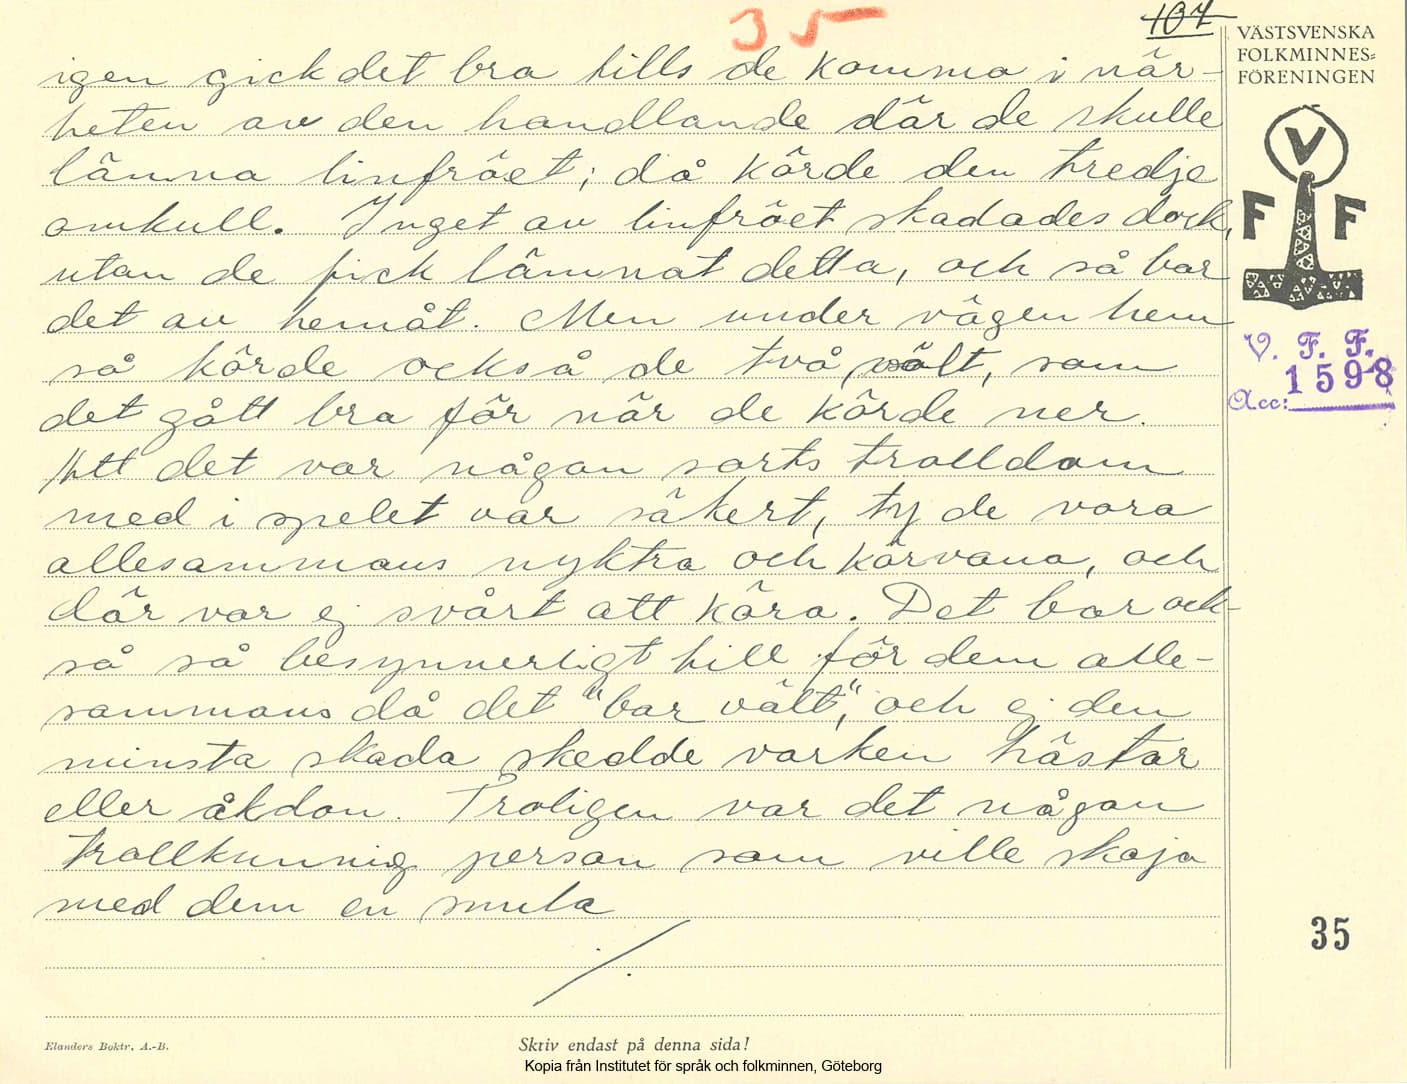 35
107
VÄSTSVENSKA
FOLKMINNES=
FÖRENINGEN
V
F F
V. F. F.
Acc: 1598
igen gick det bra tills de komma i när-
heten av den handlande där de skulle
lämna linfröet; då körde den tredje
omkull. Inget av linfröet skadades dock,
utan de fick lämnat detta, och så bar
det av hemåt. Men under vägen hem
så körde också de två, vält, som
det gått bra för när de körde ner.
Att det var någon sorts trolldom
med i spelet var säkert, ty de vora
allesammans nyktra och körvana, och
där var ej svårt att köra. Det bar ock-
så så besynnerligt till för dem alle-
sammans då det "bar vält", och ej den
minsta skada skedde varken hästar
eller åkdon. Troligen var det någon
trollkunnig person som ville skoja
med dem en smula
35
Elanders Boktr. A.-B.
Skriv endast på denna sida!
Kopia från Institutet för språk och folkminnen, Göteborg